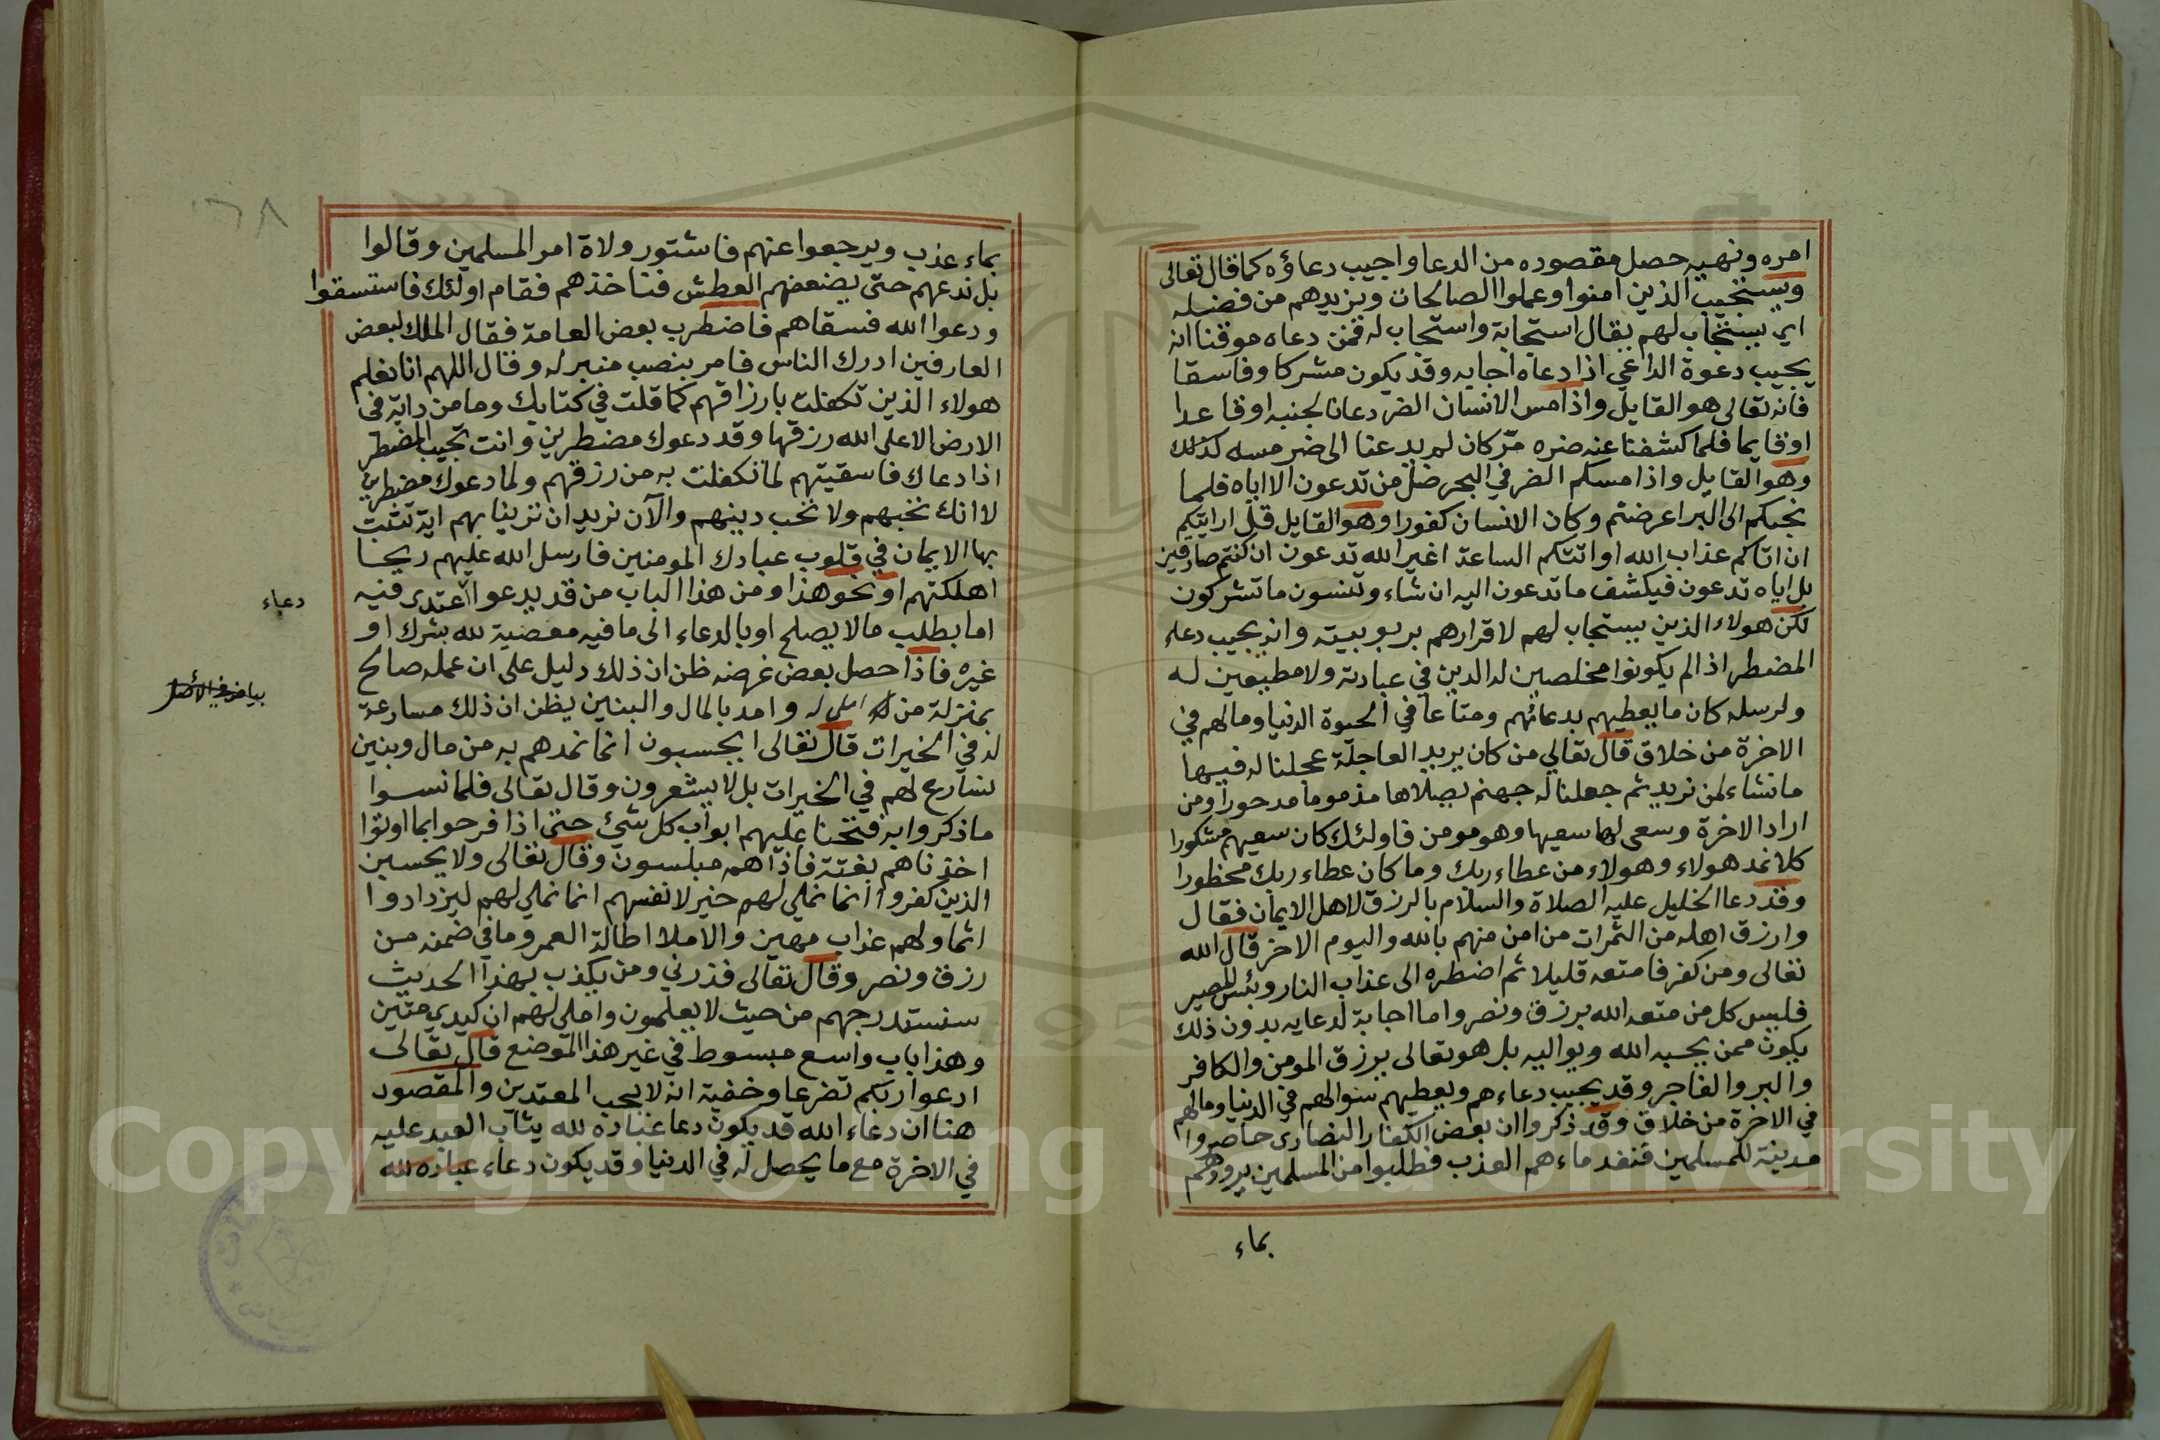 امره ونهيه حصل مقصوده من الدعا واجيب دعاؤه كما قال تعالى
ويستجيب الذين امنوا وعملوا الصالحات ويزيدهم من فضله
اي يستجاب لهم يقال استجابة واستجاب له فمن دعاه موقنا انه
يجيب دعوة الداعي اذا دعاه اجابه وقد يكون مشركا وفاسقا
فانه تعالى هو القايل واذا مس الانسان الضر دعانا لجنبه او قاعدا
او قايما فلما كشفنا عنه ضره مر كان لم يدعنا الى ضر مسه كذلك
وهو القايل واذا مسكم الضر في البحر ضل من تدعون الا اياه فلما
نجيكم الى البر اعرضتم وكان الانسان كفورا وهو القايل قل ارايتكم
ان اتاكم عذاب الله او اتتكم الساعة اغير الله تدعون ان كنتم صادقين
بل اياه تدعون فيكشف ما تدعون اليه ان شاء وتنسون ما تشركون
لكن هولاء الذين يستجاب لهم لاقرارهم بربوبيته وانه يجيب دعاء
المضطر اذا لم يكونوا مخلصين له الدين في عبادته ولا مطيعين له
ولرسله كان ما يعطيهم بدعائهم ومتاعا في الحيوة الدنيا وما لهم في
الاخرة من خلاق قال تعالي من كان يريد العاجلة عجلنا له فيها
ما نشاء لمن نريد ثم جعلنا له جهنم يصلاها مذموما مدحورا ومن
اراد الاخرة وسعى لها سعيها وهو مومن فاولئك كان سعيهم مشكورا
كلا نمد هولاء وهولاء من عطاء ربك وما كان عطاء ربك محظورا
وقد دعا الخليل عليه الصلاة والسلام بالرزق لاهل الايمان فقال
وارزق اهله من الثمرات من امن منهم بالله واليوم الاخر قال الله
تعالى ومن كفر فامتعه قليلا ثم اضطره الى عذاب النار وبئس المصير
فليس كل من متعه الله برزق ونصر واما اجابة لدعايه بدون ذلك
يكون ممن يحبه الله ويواليه بل هو تعالى يرزق المومن والكافر
والبر والفاجر وقد يجيب دعاءهم ويعطيهم سوالهم في الدنيا وما لهم
في الاخرة من خلاق وقد ذكروا ان بعض الكفار النصارى حاصروا
مدينة للمسلمين فنفد ماءهم العذب فطلبوا من المسلمين يزودوهم
بماء
بماء عذب ويرجعوا عنهم فاشتور ولاة امر المسلمين وقالوا
بل ندعهم حتى يضعفهم العطش فناخذهم فقام اولئك فاستسقوا
ودعوا الله فسقاهم فاضطرب بعض العامة فقال الملك لبعض
العارفين ادرك الناس فامر بنصب منبر له وقال اللهم انا نعلم
هولاء الذين تكفلت بارزاقهم كما قلت في كتابك وما من دابة في
الارض الا على الله رزقها وقد دعوك مضطرين وانت تجيب المضطر
اذا دعاك فاسقيتهم لما تكفلت به من رزقهم ولما دعوك مضطرين
لا انك تحبهم ولا تحب دينهم والآن نريد ان ترينا بهم اية تثبت
بها الايمان في قلوب عبادك المومنين فارسل الله عليهم ريحا
اهلكتهم او نحو هذا ومن هذا الباب من قد يدعوا اعتدى فيه
اما بطلب ما لا يصلح او بالدعاء الى ما فيه معصية لله بشرك او
غيره فاذا حصل بعض غرضه ظن ان ذلك دليل على ان عمله صالح
بمنزلة من املى له وامد بالمال والبنين يظن ان ذلك مسارعة
له في الخيرات قال تعالى ايحسبون انما نمدهم به من مال وبنين
نسارع لهم في الخيرات بل لا يشعرون وقال تعالى فلما نسوا
ما ذكروا به فتحنا عليهم ابواب كل شئ حتى اذا فرحوا بما اوتوا
اخذناهم بغتة فاذا هم مبلسون وقال تعالى ولا يحسبن
الذين كفروا انما نملي لهم خير لانفسهم انما نملي لهم ليزدادوا
اثما ولهم عذاب مهين والاملا اطالة العمر وما في ضمنه من
رزق ونصر وقال تعالى فذرني ومن يكذب بهذا الحديث
سنستدرجهم من حيث لا يعلمون واملي لهم ان كيدي متين
وهذا باب واسع مبسوط في غير هذا الموضع قال تعالى
ادعوا ربكم تضرعا وخفية انه لا يحب المعتدين والمقصود
هنا ان دعاء الله قد يكون دعا عبادة لله يثاب العبد عليه
في الاخرة مع ما يحصل له في الدنيا وقد يكون دعاء عبادة لله
دعاء
بياض في الأصل
Copyright © King Saud University